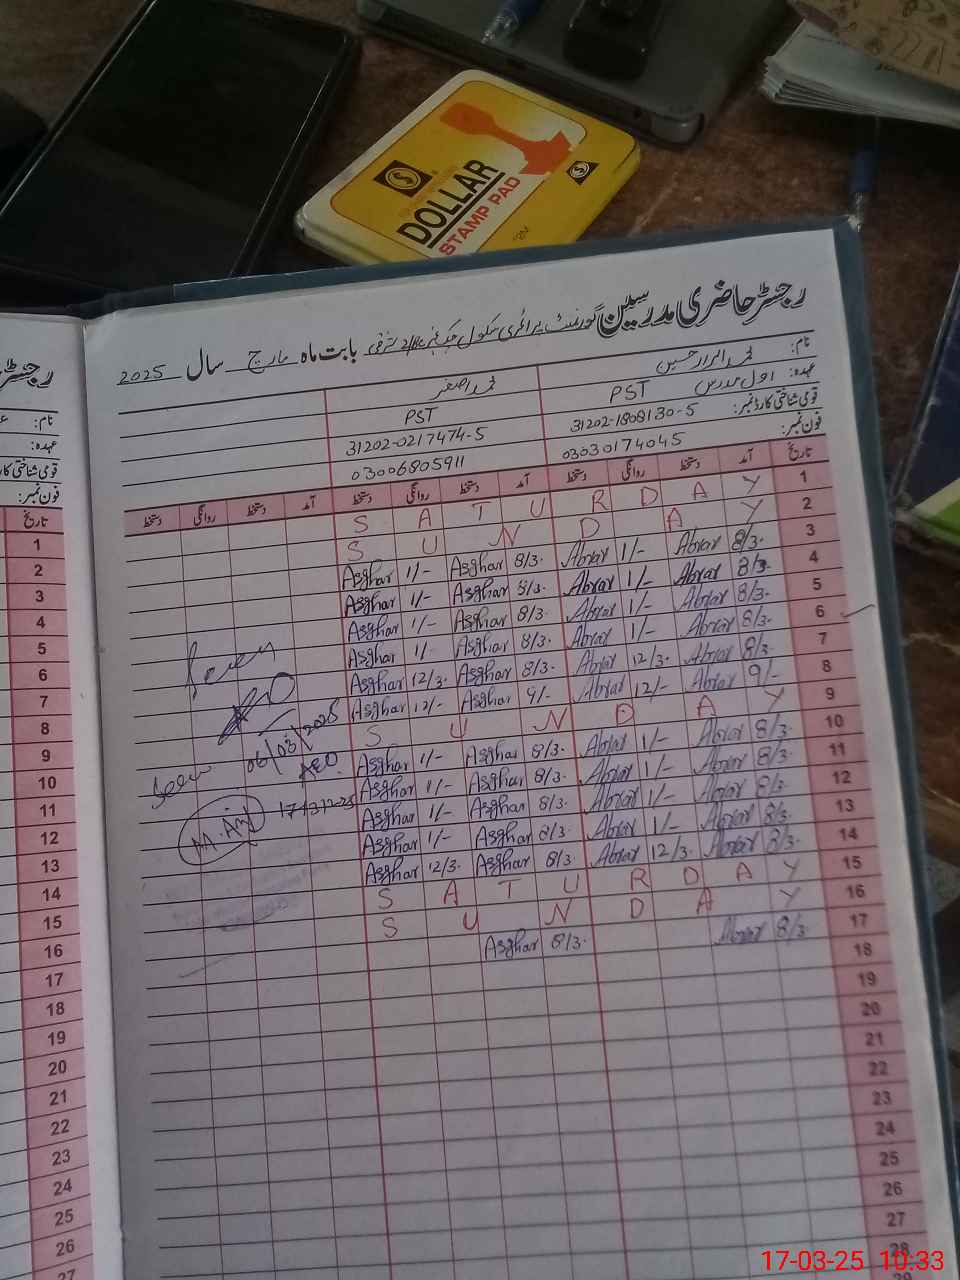 DOLLAR
STAMP PAD
رجسٹر حاضری مدرسین گورنمنٹ پرائمری سکول چک نمبر بابت ماہ مارچ سال 2025
نام: محمد ابرار حسین محمد اصغر
عہدہ: اول مدرس PST PST
قومی شناختی کارڈ نمبر: 31202-1808130-5 31202-0217474-5
فون نمبر: 03030174045 03006805911
تاریخ آمد دستخط روانگی دستخط آمد دستخط روانگی دستخط آمد دستخط روانگی دستخط
1 S A T U R D A Y
2 S U N D A Y
3 Asghar 1/- Asghar 8/3. Abrar 1/- Abrar 8/3.
4 Asghar 1/- Asghar 8/3. Abrar 1/- Abrar 8/3.
5 Asghar 1/- Asghar 8/3. Abrar 1/- Abrar 8/3.
6 Asghar 1/- Asghar 8/3. Abrar 1/- Abrar 8/3.
7 Asghar 12/3. Asghar 8/3. Abrar 12/3. Abrar 8/3.
8 Asghar 12/- Asghar 9/- Abrar 12/- Abrar 9/-
9 S U N D A Y
10 Asghar 1/- Asghar 8/3. Abrar 1/- Abrar 8/3.
11 Asghar 1/- Asghar 8/3. Abrar 1/- Abrar 8/3.
12 Asghar 1/- Asghar 8/3. Abrar 1/- Abrar 8/3.
13 Asghar 1/- Asghar 8/3. Abrar 1/- Abrar 8/3.
14 Asghar 12/3. Asghar 8/3. Abrar 12/3. Abrar 8/3.
15 S A T U R D A Y
16 S U N D A Y
17 Asghar 8/3. Abrar 8/3.
18
19
20
21
22
23
24
25
26
27
28
06/03/2025
AEO
رجسٹر
نام:
عہدہ:
قومی شناختی کارڈ
فون نمبر:
تاریخ
1
2
3
4
5
6
7
8
9
10
11
12
13
14
15
16
17
18
19
20
21
22
23
24
25
26
27
17-03-25 10:33